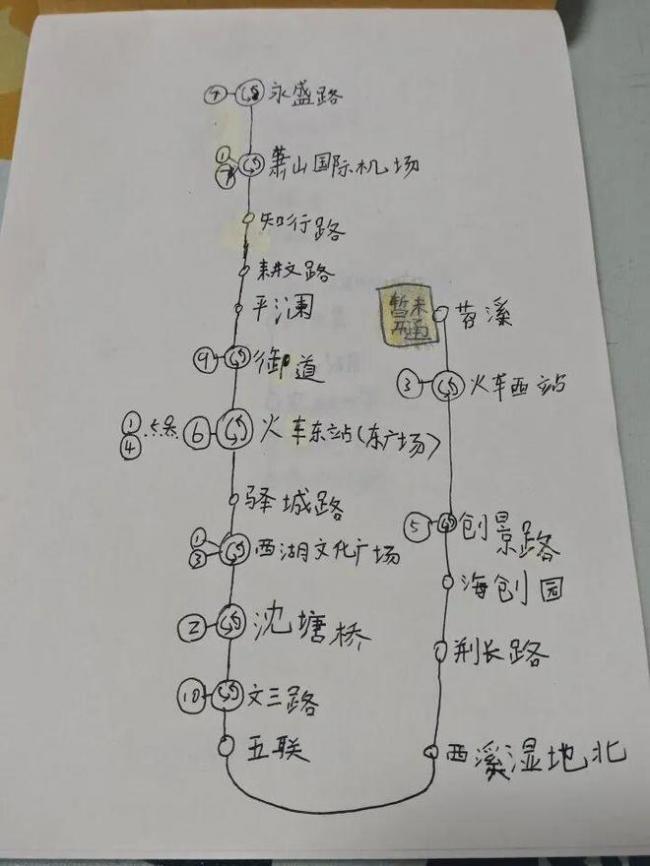 7 永盛路
1
7 萧山国际机场
知行路
耕文路
平澜
9 御道
1
4
6 火车东站(东广场)
驿城路
1
3 西湖文化广场
2 沈塘桥
10 文三路
五联
暂未
开通 苕溪
3 火车西站
5 创景路
海创园
荆长路
西溪湿地北